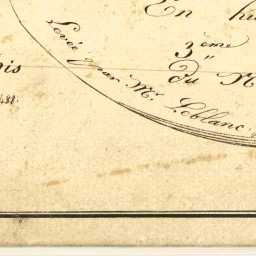 En hu
3ème
Du M
Levée par Mr. Leblanc
is